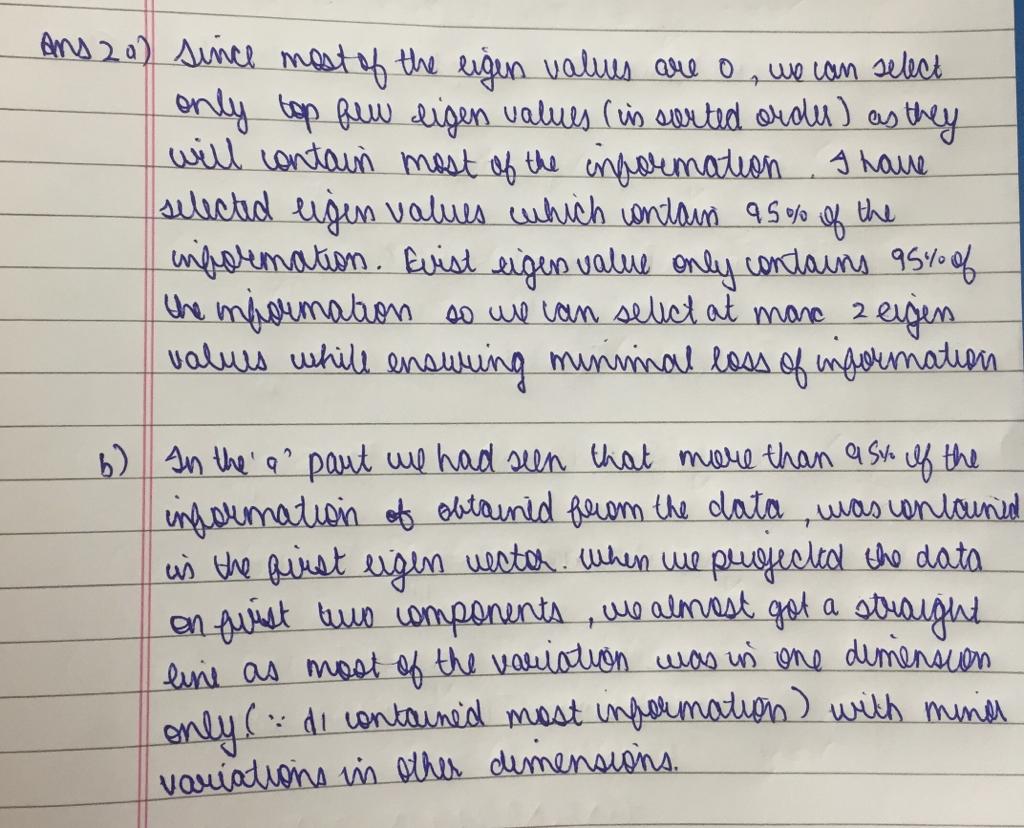 Ans 2 a) Since most of the eigen values are 0, we can select
only top few eigen values (in sorted order) as they
will contain most of the information. I have
selected eigen values which contain 95% of the
information. First eigen value only contains 95% of
the information so we can select at max 2 eigen
values while ensuring minimal loss of information
b) In the 'a' part we had seen that more than 95% of the
information of obtained from the data, was contained
in the first eigen vector. When we projected the data
on first two components, we almost got a straight
line as most of the variation was in one dimension
only (∵ d1 contained most information) with minor
variations in other dimensions.